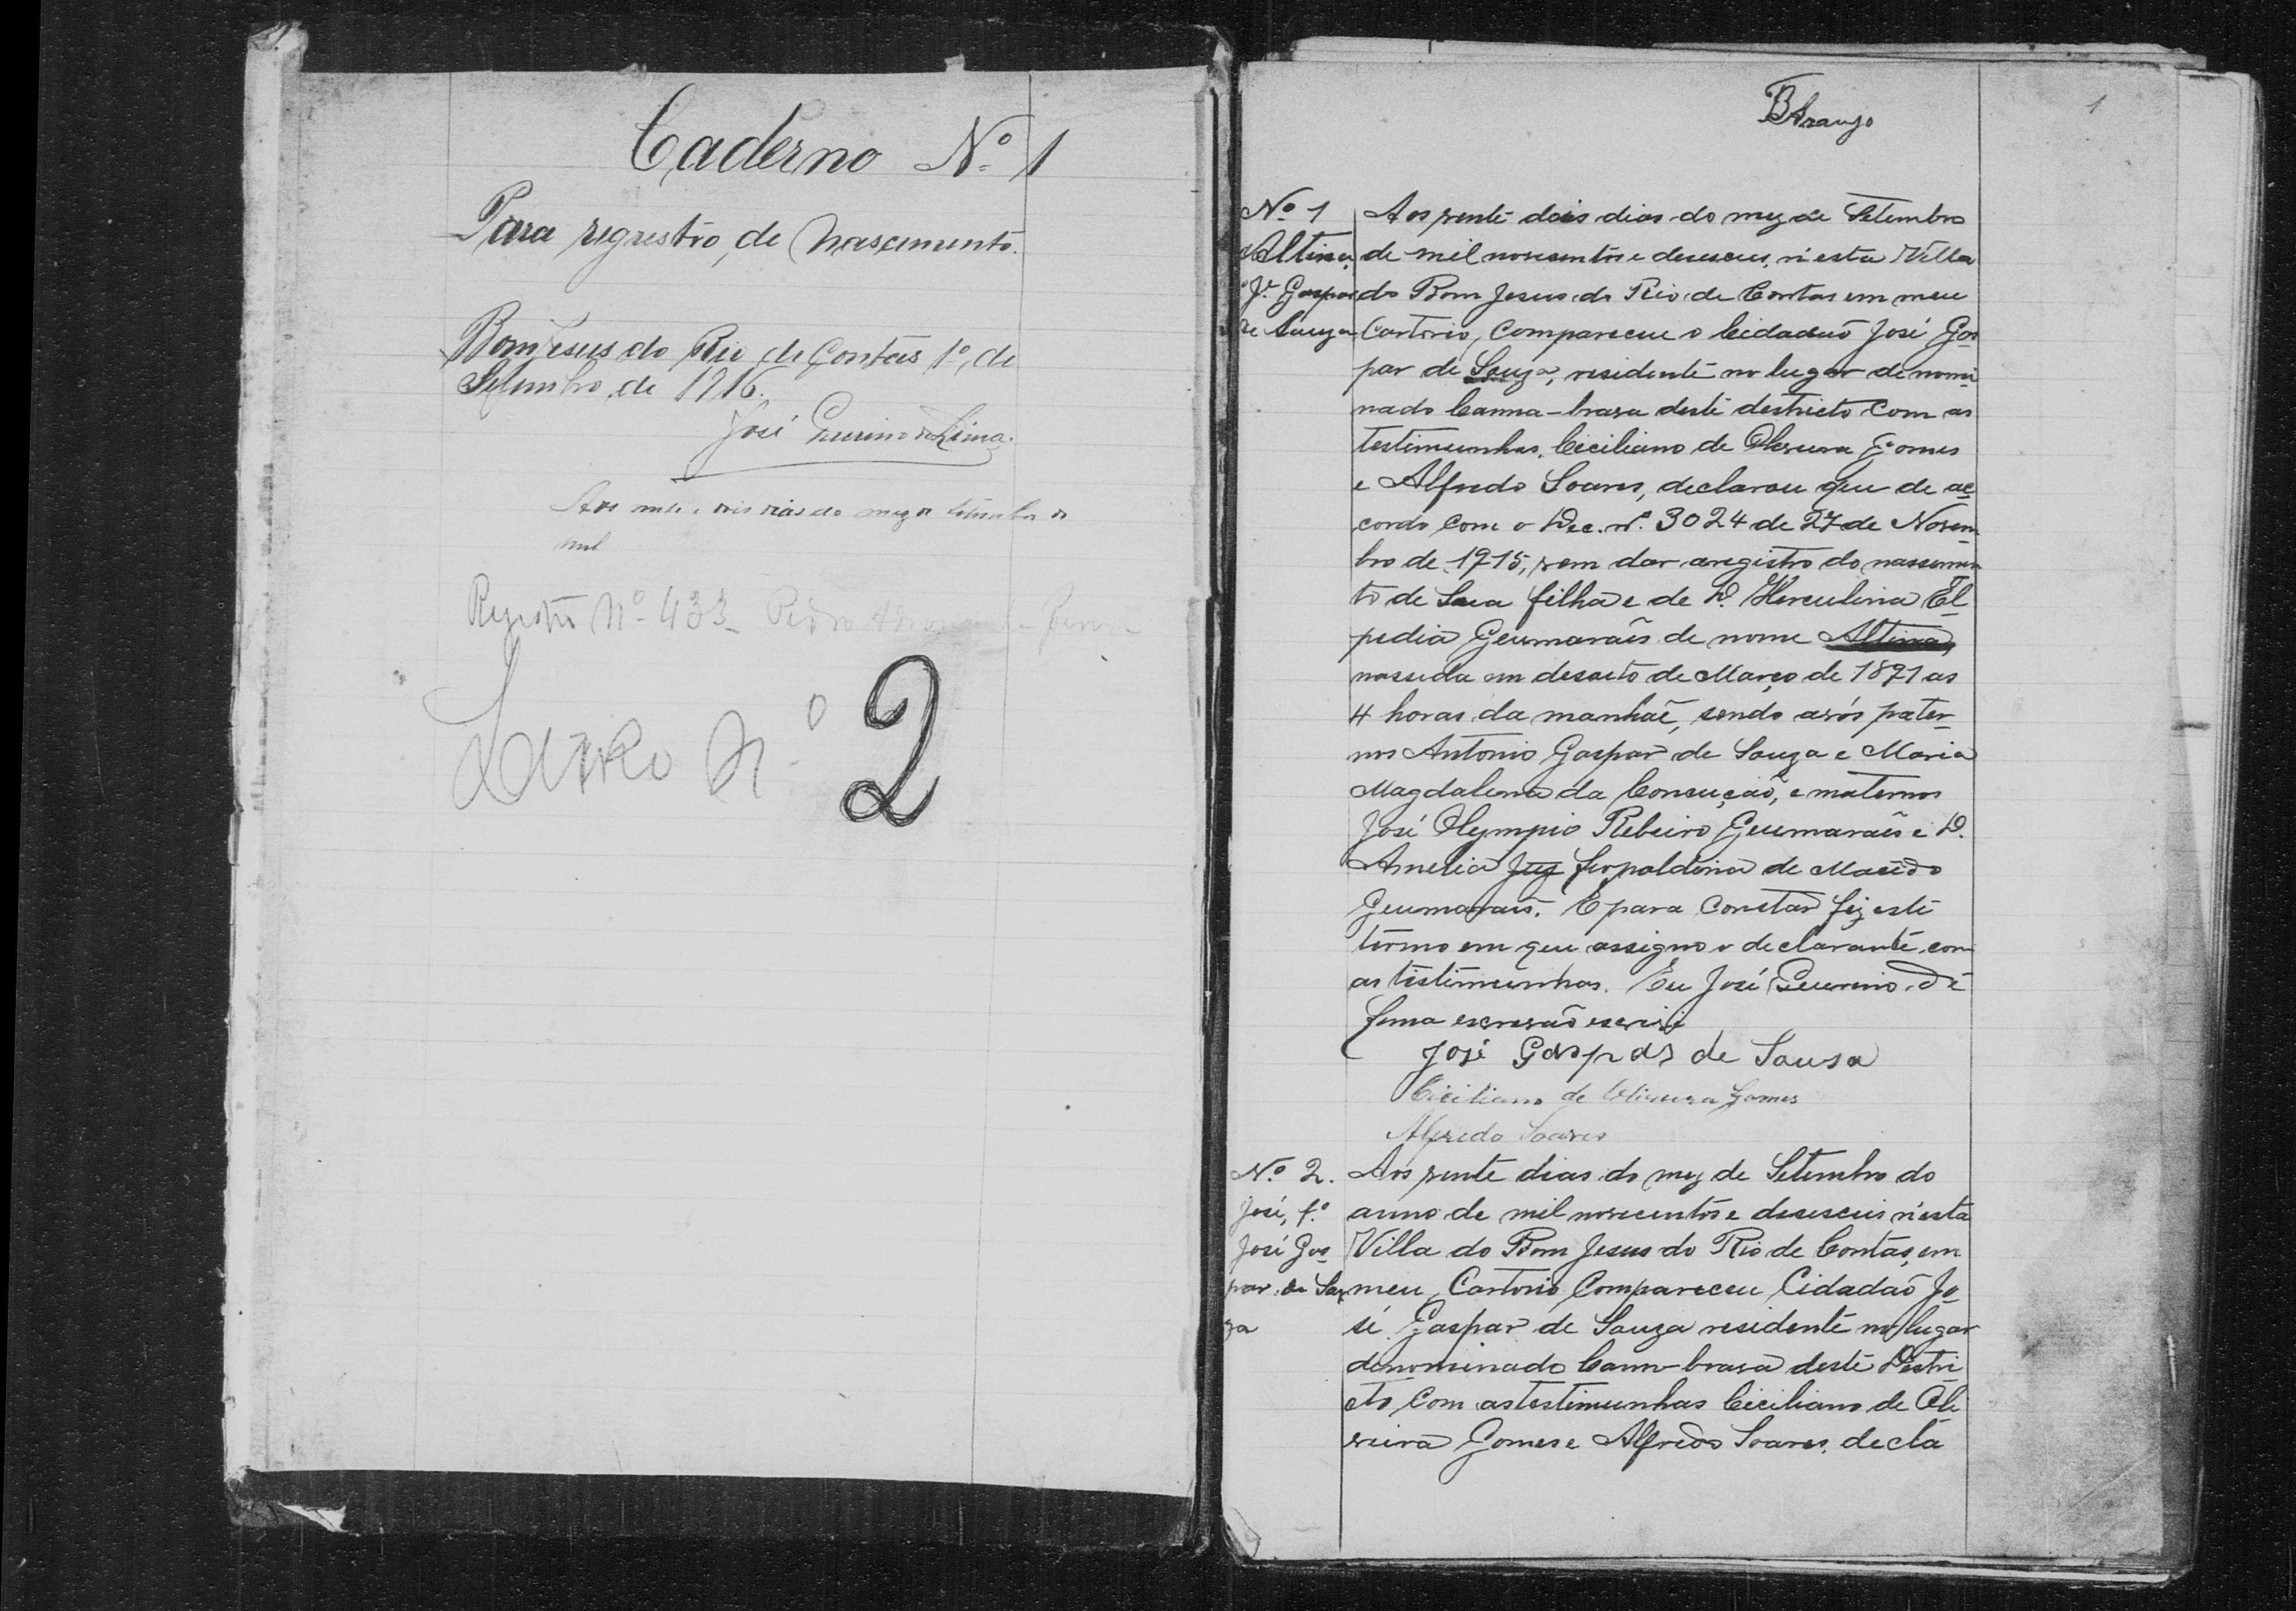 Caderno Nº 1
Para regristro, de Nascimento.
Bom Jesus do Rio de Contas 1º, de
Setembro de 1916.
José Guirino de Lima.
Aos vinte e dois dias do mez de Setembro de
mil
Registro Nº 433 Pedro
Livro Nº 2
BAraujo
1
Nº 1
Altina,
Jé Gaspar
de Souza
Aos vente dois dias do mez de Setembro
de mil novesentos e deseseis, n'esta Villa
do Bom Jesus do Rio de Contas em meu
Cartorio, Compareceu o Cidadaõ José Gas
par de Souza, residente no lugar denomi
nado Canna-brava deste destricto Com as
testimunhas, Ciciliano de Olivera Gomes
e Alfredo Soares, declarou que de ac
cordo Com o Dec. nº 3024 de 27 de Novem
bro de 1915, vem dar aregistro do nassimen
to de Sua filha e de D. Herculina El
pedia Geumarães de nome Altina,
nassida em desoito de Março de 1891 as
4 horas da manhaẽ, sendo avós pater
nos Antonio Gaspar de Souza e Maria
Magdalena da Conceição, e maternos
José Olympio Ribeiro Geumarães e D.
Amelia Leopoldina de Macêdo
Geumarais. E para Constar fiz este
termo em que assigno o declarante com
as testimunhas. Eu José Guirino de
Lima escrivaõ escrivi
José Gaspar de Sousa
Ciciliano de Oliveira Gomes
Alfredo Soares
Nº 2.
José, fº
José Gas
par de Sou
za
Aos vente dias do mez de Setembro do
anno de mil novecentos e deseseis n'esta
Villa do Bom Jesus do Rio de Contas, em
meu Cartorio Compareceu Cidadaõ Jo
sé Gaspar de Souza residente no lugar
denominado Cann-brava deste Destri
cto Com as testimunhas Ciciliano de Oli
veira Gomes e Alfredo Soares, decla